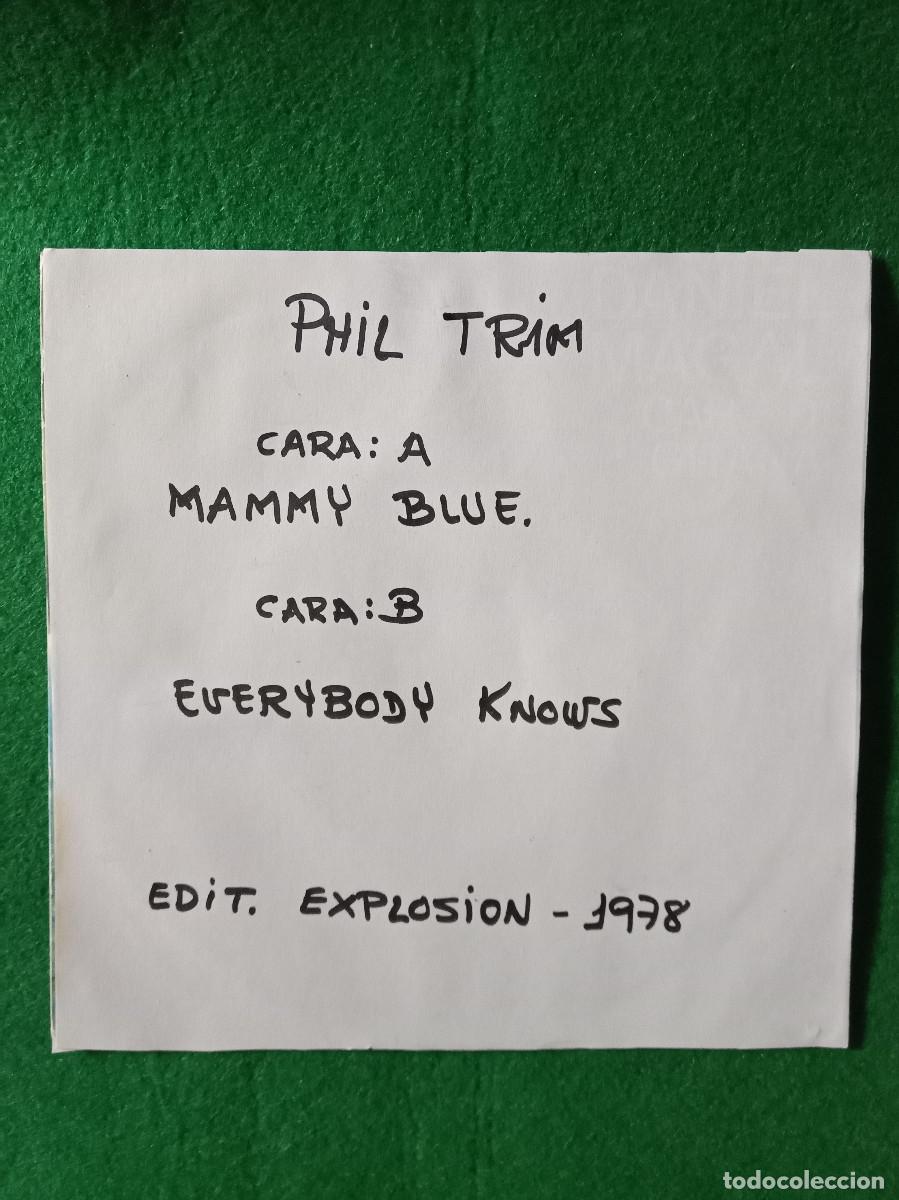 PHIL TRIM
CARA: A
MAMMY BLUE.
CARA: B
EVERYBODY KNOWS
EDIT. EXPLOSION - 1978
todocoleccion